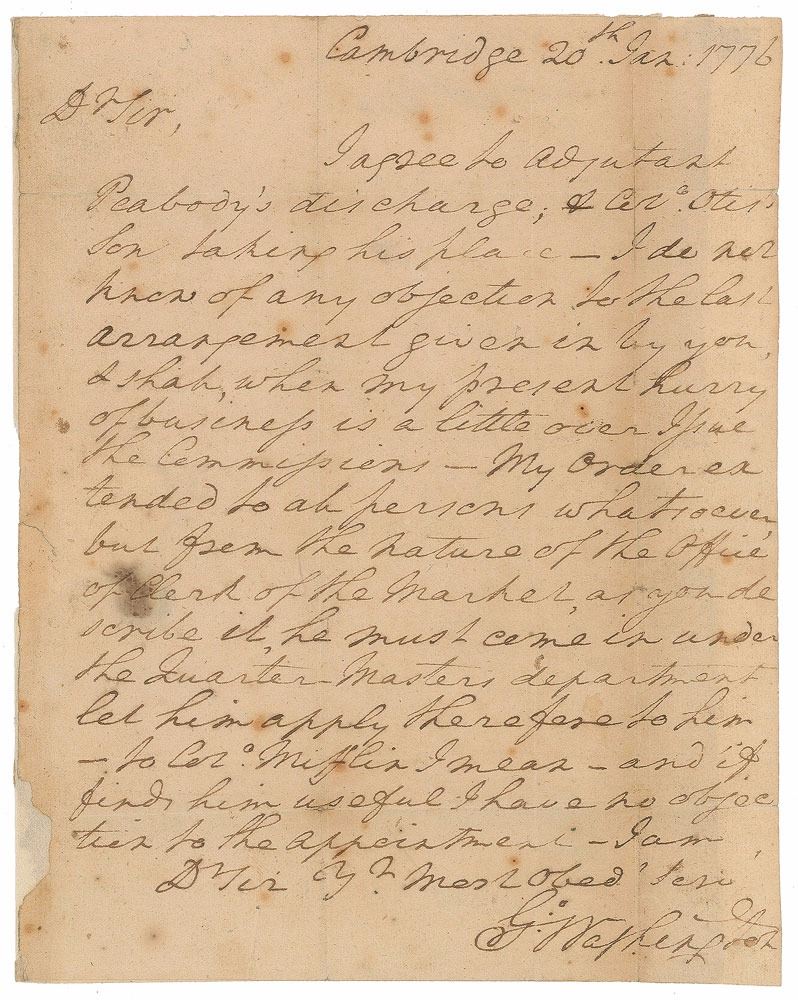 Cambridge 20th Jan: 1776
Dr Sir,
I agree to Adjutant
Peabody's discharge; & Colo. Otis's
Son taking his place — I do not
know of any objection to the last
arrangement given in by you,
& shall, when my present hurry
of business is a little over Issue
the Commissions — My Order ex
tended to all persons whatsoever
but from the nature of the Office
of Clerk of the Market, as you de
scribe it, he must come in under
the Quarter-Masters department
let him apply therefore to him
— to Colo. Mifflin I mean — and if
finds him useful I have no objec
tion to the appointment — I am
Dr Sir Yr Most Obedt Servt
Go: Washington